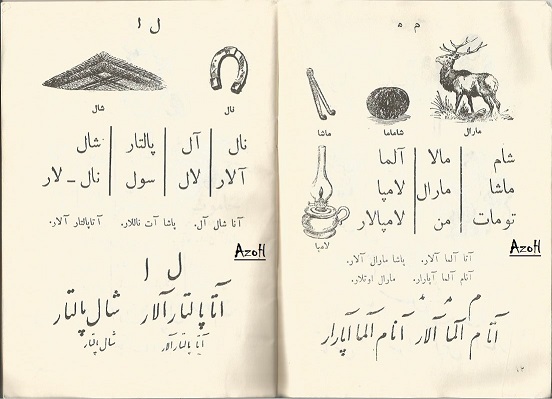 م مـ
مارال شاماما ماشا
شام مالا آلما
ماشا مارال لامپا
تومات من لامپالار
لامپا
AzoH
آتا آلما آلار. پاشا مارال آلار.
آنام آلما آپارار. مارال اوتلار.
آتام آلما آلار آنام آلما آپارار
ل ا
نال شال
نال آل پالتار شال
آلار لال سول نال ـ لار
آنا شال آل. پاشا آت ناللار. آتا پالتار آلار.
AzoH
ل ا
آتا پالتار آلار شال پالتار
آتا پالتار آلار شال پالتار